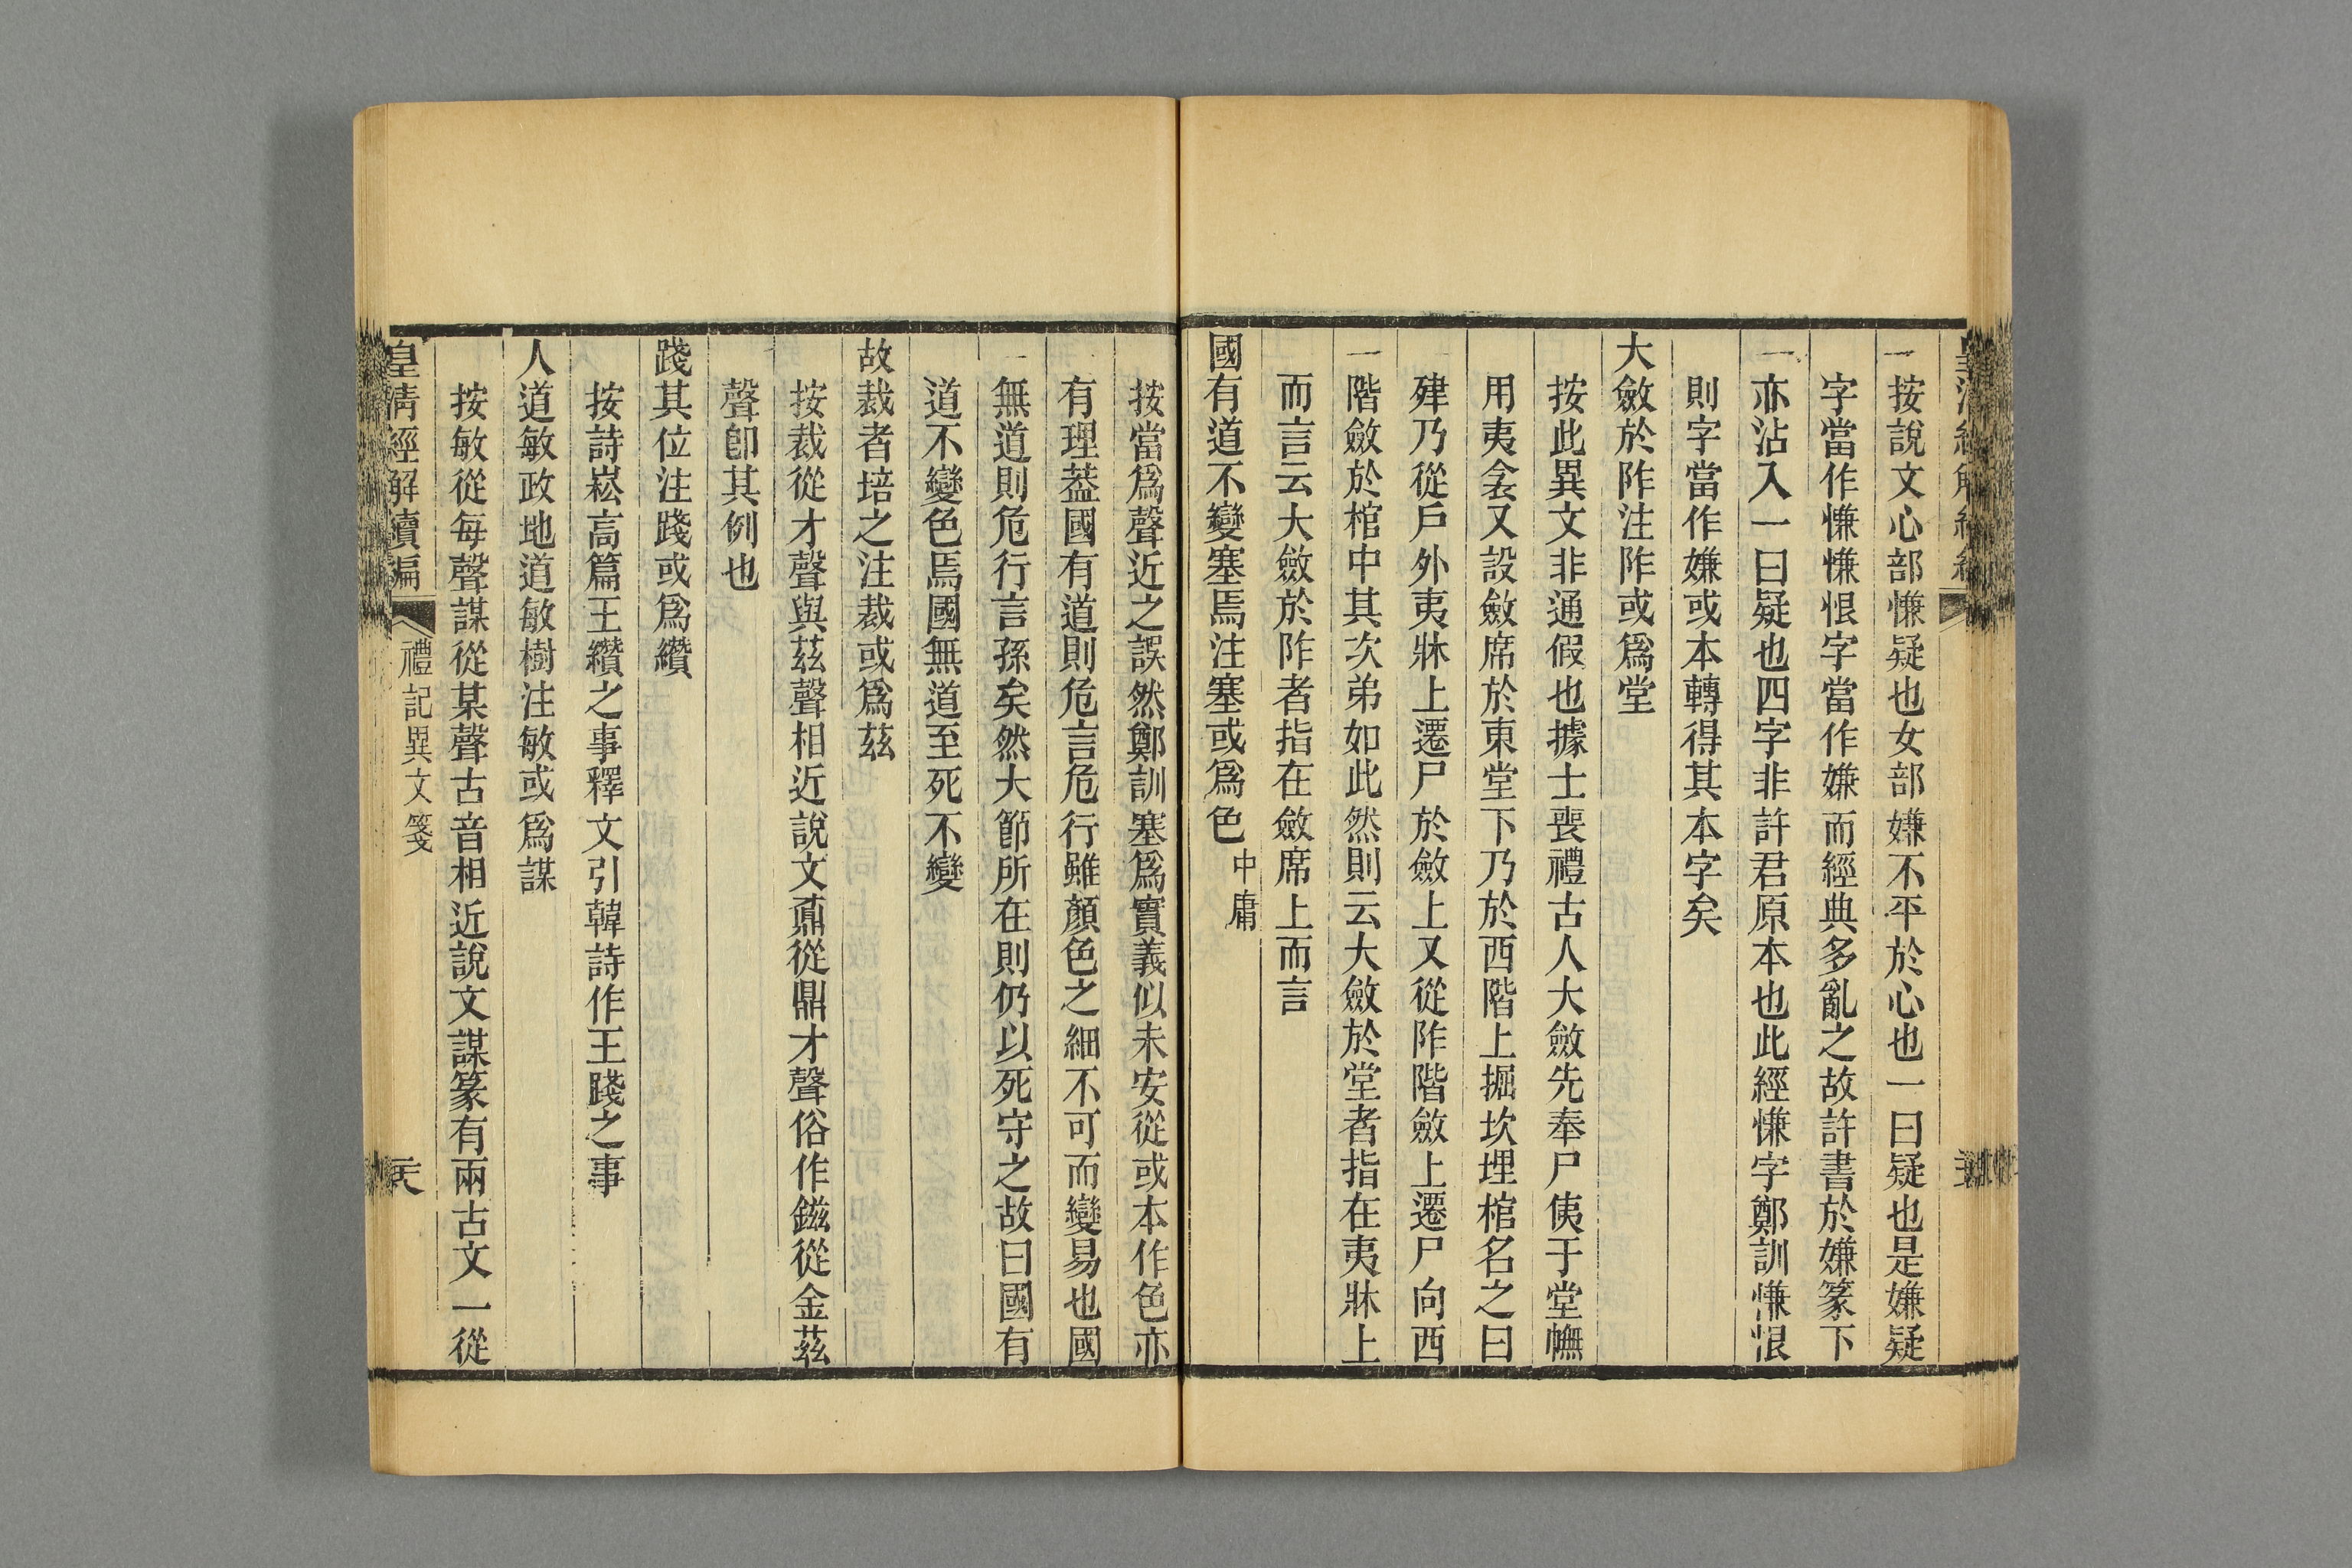 按說文心部慊疑也女部嫌不平於心也一曰疑也是嫌疑
字當作慊慊恨字當作嫌而經典多亂之故許書於嫌篆下
亦沾入一曰疑也四字非許君原本也此經慊字鄭訓慊恨
則字當作嫌或本轉得其本字矣
大斂於阼注阼或爲堂
按此異文非通假也據士喪禮古人大斂先奉尸侇于堂幠
用夷衾又設斂席於東堂下乃於西階上掘坎埋棺名之曰
肂乃從戶外夷牀上遷尸於斂上又從阼階斂上遷尸向西
階斂於棺中其次弟如此然則云大斂於堂者指在夷牀上
而言云大斂於阼者指在斂席上而言
國有道不變塞焉注塞或爲色中庸
按當爲聲近之誤然鄭訓塞爲實義似未安從或本作色亦
有理葢國有道則危言危行雖顏色之細不可而變易也國
無道則危行言孫矣然大節所在則仍以死守之故曰國有
道不變色焉國無道至死不變
故栽者培之注栽或爲茲
按栽從才聲與茲聲相近說文鼒從鼎才聲俗作鎡從金茲
聲卽其例也
踐其位注踐或爲纘
按詩崧高篇王纘之事釋文引韓詩作王踐之事
人道敏政地道敏樹注敏或爲謀
按敏從每聲謀從某聲古音相近說文謀篆有兩古文一從
皇淸經解續編
禮記異文箋
天